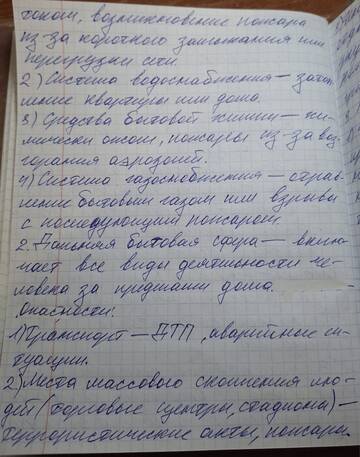 током, возникновение пожара
из-за короткого замыкания или
перегрузки сети.
2) Система водоснабжения — затоп-
ление квартиры или дома.
3) Средства бытовой химии — хи-
мически ожог, пожары из-за воз-
горания аэрозолей.
4) Система газоснабжения — отрав-
ление бытовым газом или взрывы
с последующим пожаром.
2. Дальняя бытовая сфера — вклю-
чает все виды деятельности че-
ловека за пределами дома.
Опасности:
1) Транспорт — ДТП, аварийные си-
туации.
2) Места массового скопления лю-
дей (торговые центры, стадионы) —
террористические акты, пожары.